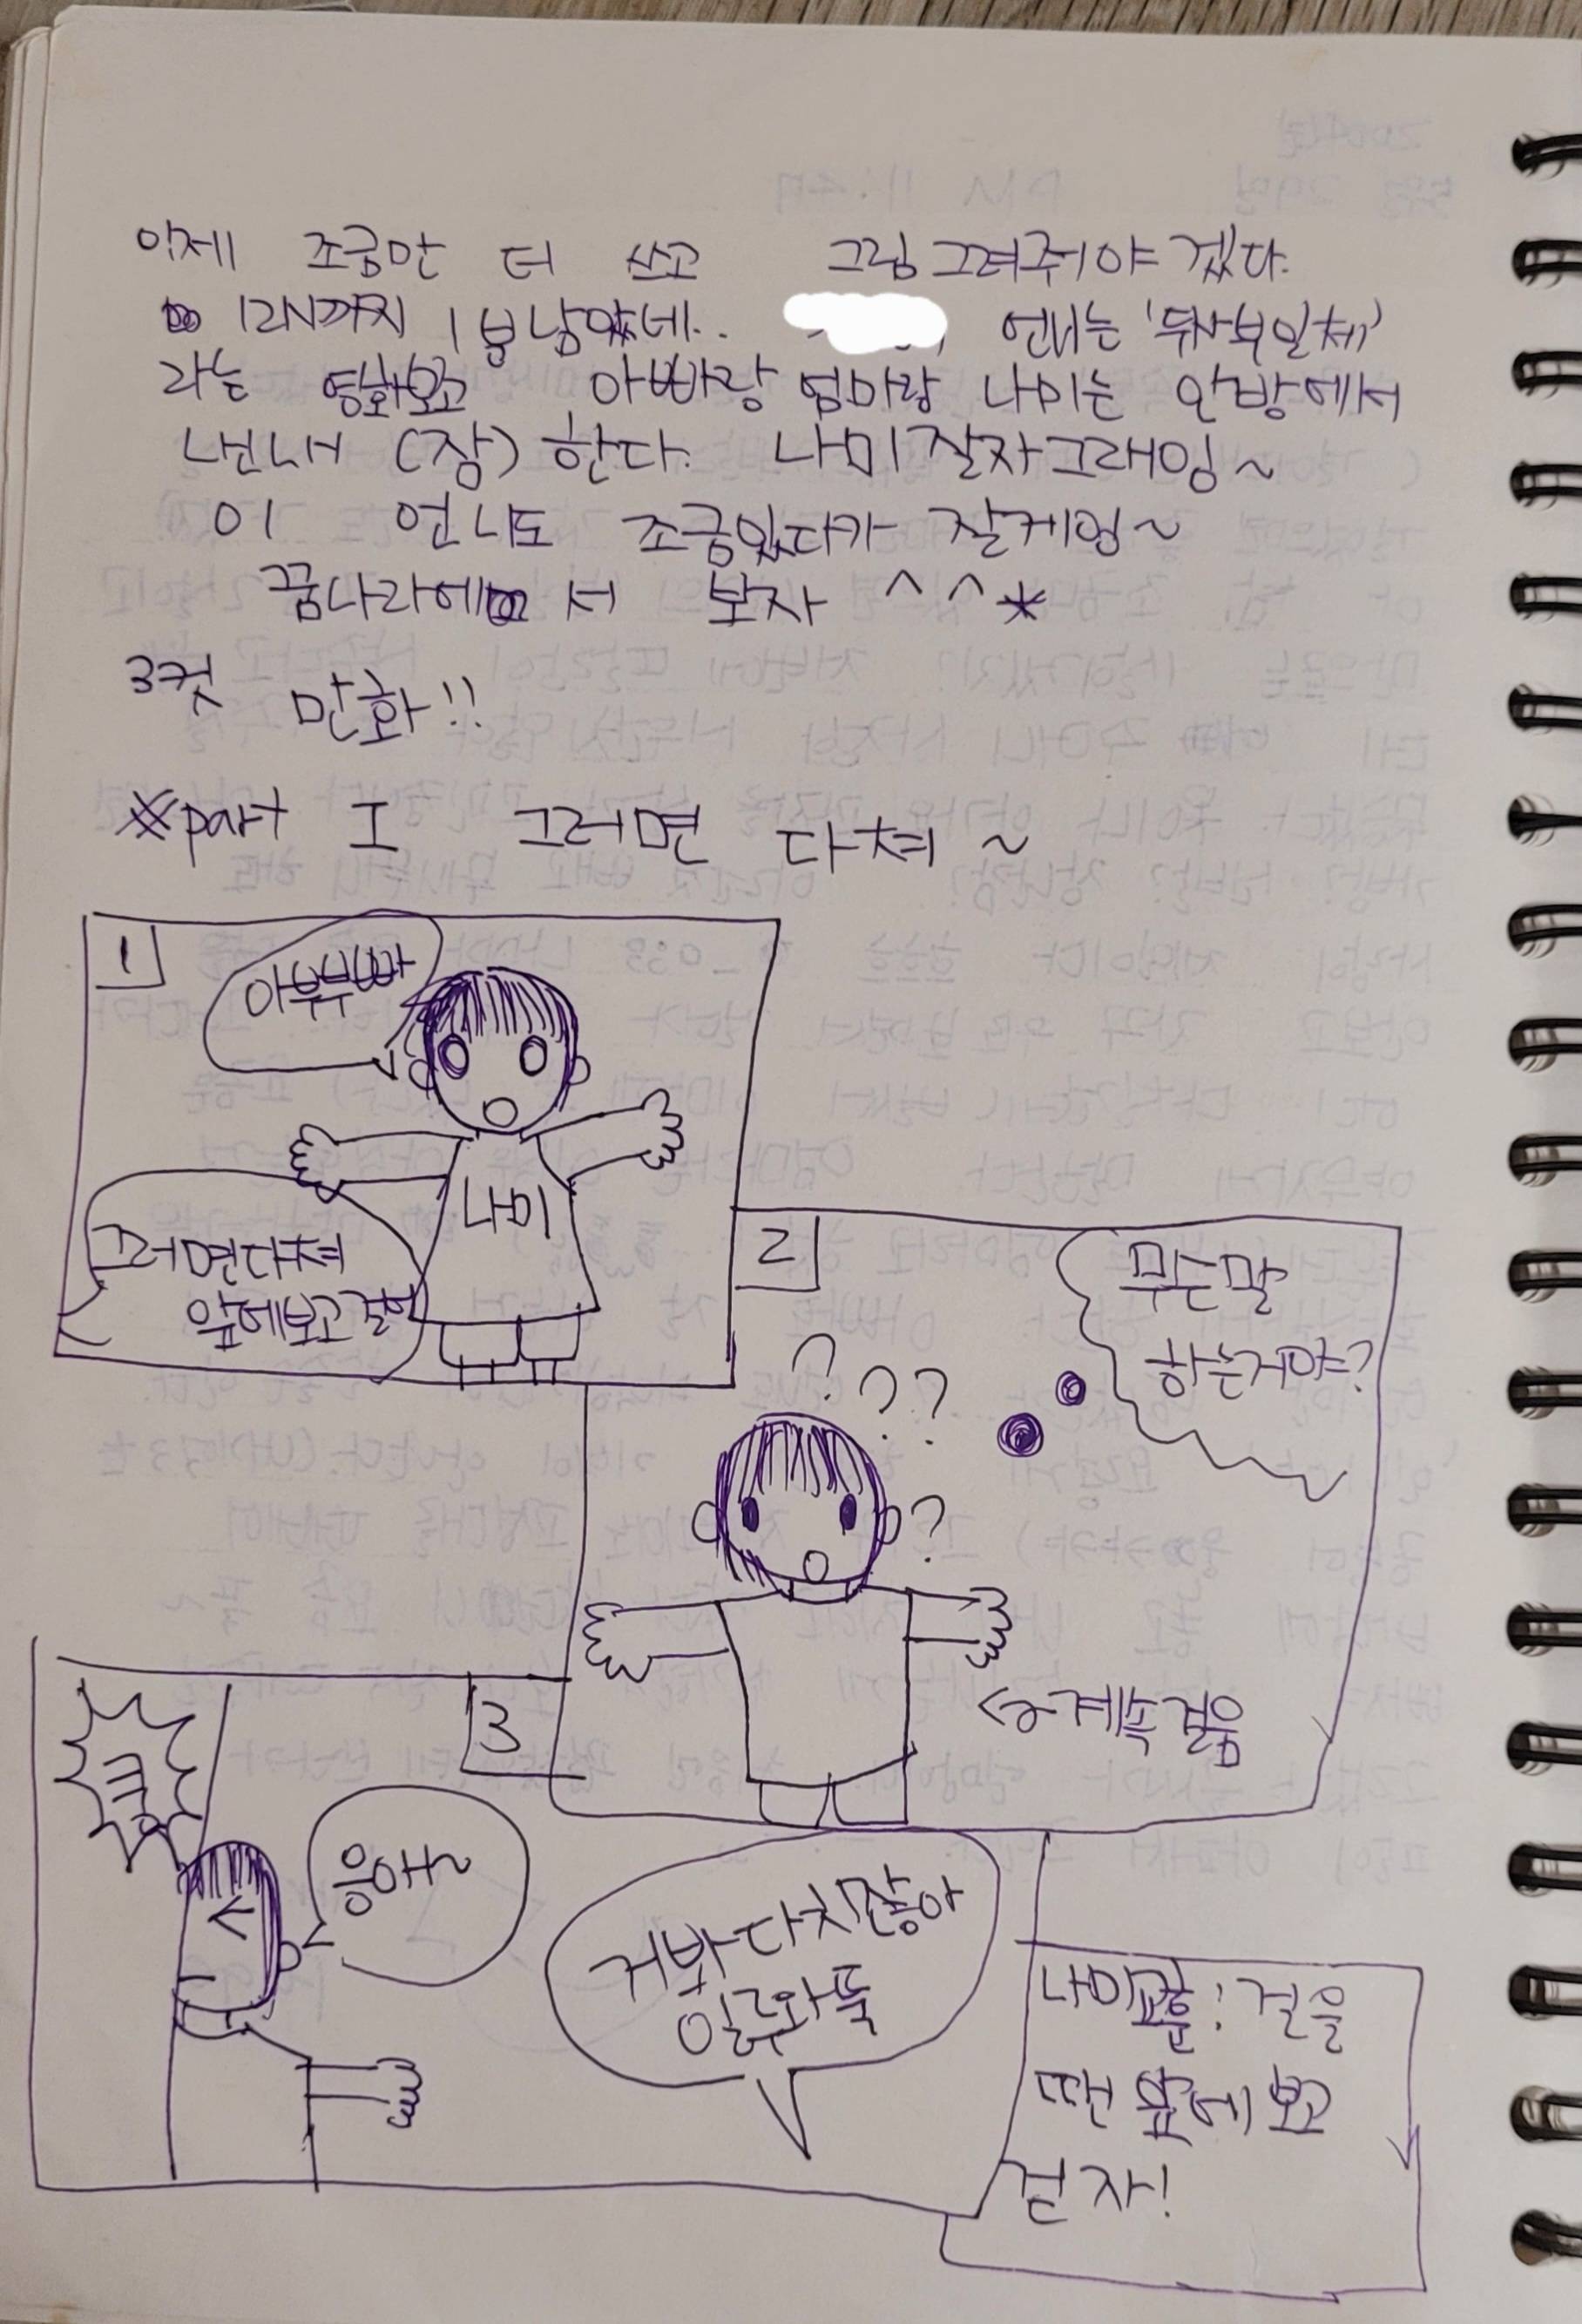 이제 조금만 더 쓰고 그림그려줘야겠다.
12시까지 1분남았네.. 언니는 '두사부일체'
라는 영화보고 아빠랑 엄마랑 나미는 안방에서
넨네 (잠) 한다. 나미잘자그래잉~
이 언니도 조금있다가 잘게잉~
꿈나라에 서 보자 ^^*
3컷 만화!!
※part I 그러면 다쳐~
1
아뿌뿌빠
나미
그러면다쳐
앞에보고걸어
2
무슨말
하는거야?
? ? ?
?
← 계속걸음
3
쿵
응애~
거봐다치잖아
일루와뚝
나미교훈! 걸을
땐 앞에 보고
걷자!